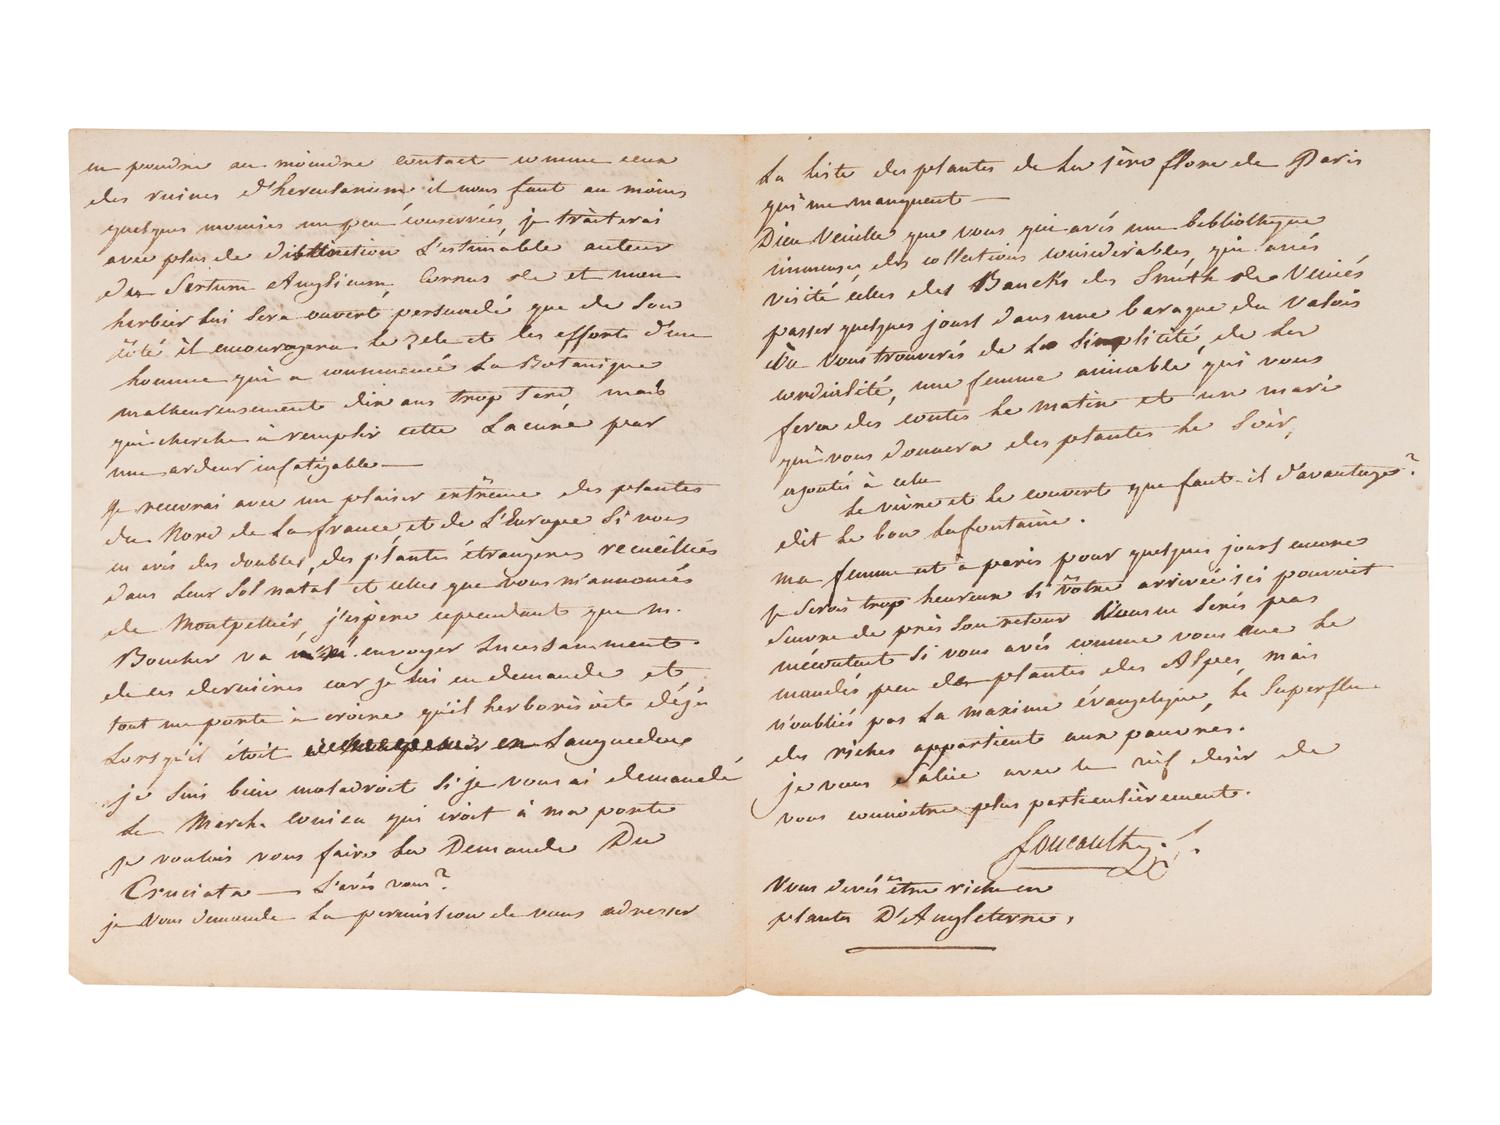 en poudre au moindre contact comme ceux
des ruines d'herculanum il nous faut au moins
quelques momies un peu conservées, je traiterai
avec plus de distinction L'estimable auteur
du Sertum Anglicum Cornus &c et mon
herbier lui sera ouvert persuadé que de Son
côté il encouragera le zele et les efforts d'un
homme qui a commencé La Botanique
malheureusement dix ans trop tard mais
qui cherche à remplir cette Lacune par
une ardeur infatigable —
je recevrai avec un plaisir extrême des plantes
du Nord de La france et de L'Europe Si vous
en avés des doubles, des plantes étrangeres recueillies
dans Leur Sol natal et celles que vous m'annoncés
de Montpellier, j'espère cependant que m.
Boucher va m'en envoyer incessamment
de ces dernieres car je lui en demande et
tout me porte à croire qu'il herborisoit déjà
Lorsqu'il étoit en Languedoc
je Suis bien maladroit Si je vous ai demandé
Le March. conica qui croit à ma porte
je voulois vous faire La Demande Du
Cruciata — L'avés vous?
je Vous demande La permission de vous adresser
La liste des plantes de La 1ère flore de Paris
qui me manquent —
Dieu Veuille que vous qui avés une bibliotheque
immense, des collections considerables, qui avés
visité celles des Bancks des Smith &c Veniés
passer quelques jours dans une baraque du Valois
Vous trouverés de La Simplicité, de La
cordialité, une femme aimable qui vous
fera des contes Le matin et un mari
qui vous donnera des plantes Le Soir,
ajoutés à cela
Le vivre et Le couvert que faut-il d'avantage?
dit Le bon Lafontaine.
ma femme est à paris pour quelques jours encore
je Serois trop heureux Si votre arrivée ici pouvoit
Suivre de près Son retour Vous ne Serés pas
mécontent Si vous avés comme vous me Le
mandés peu de plantes des Alpes, mais
n'oubliés pas La maxime évangelique, Le Superflu
des riches appartient aux pauvres.
je vous Salue avec le vif desir de
vous connoitre plus particulièrement.
foucault
Vous devés être riche en
plantes D'Angleterre.